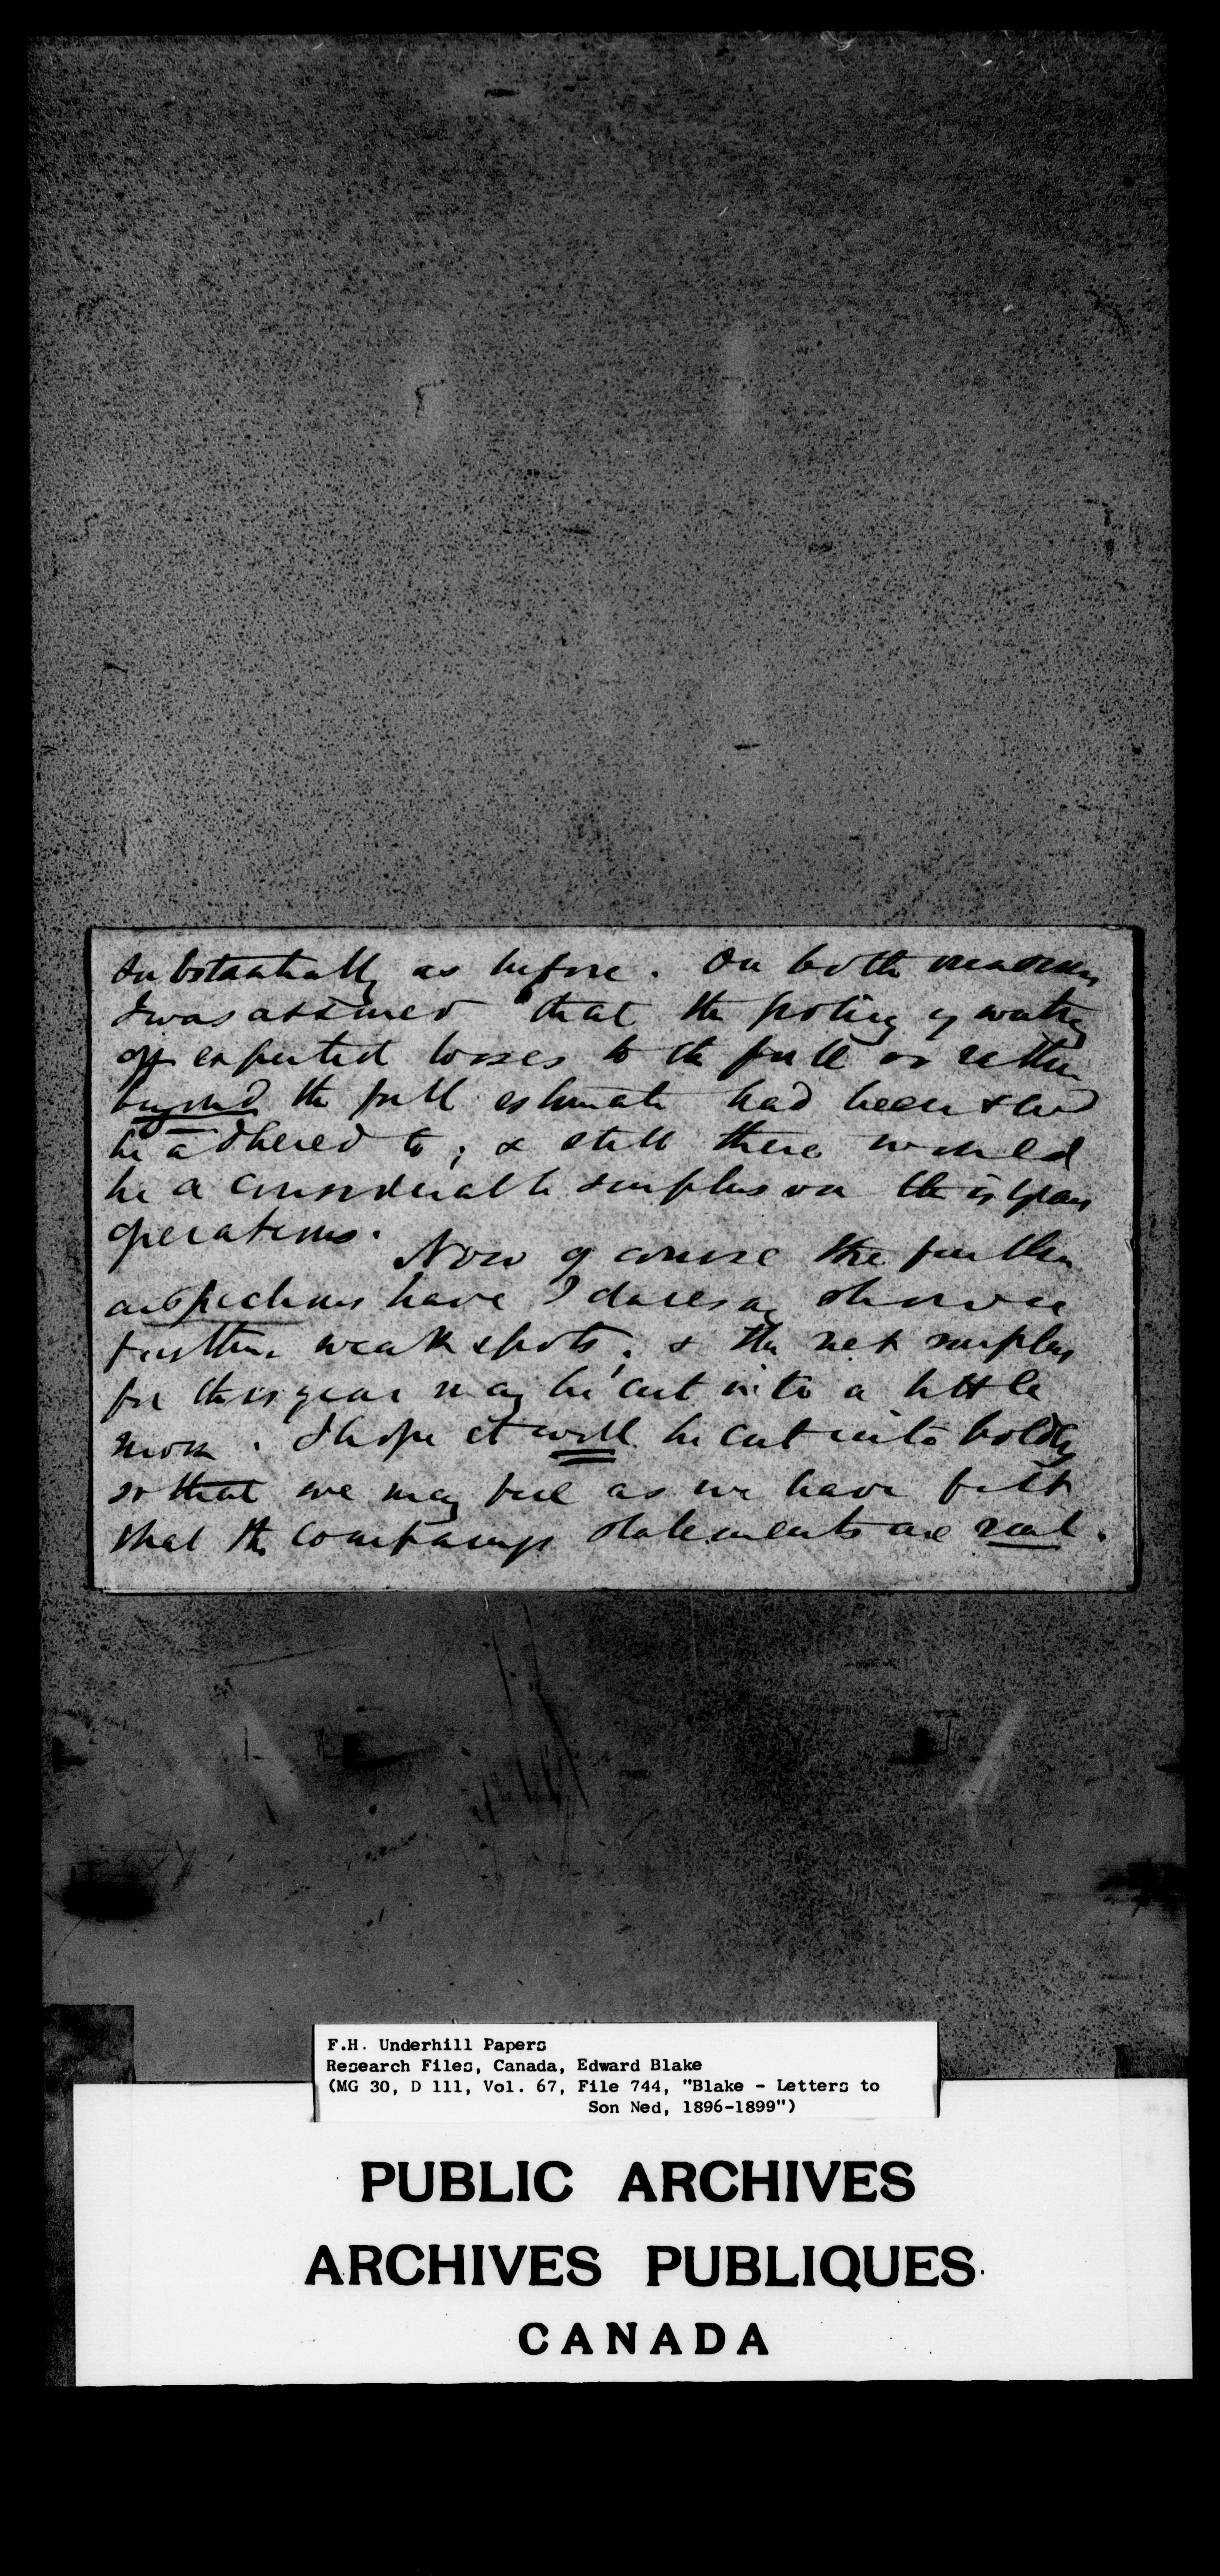 substantially as before. On both occasions
I was assured that the policy of writing
off expected losses to the full or rather
beyond the full estimate had been & wd
be adhered to; & still there would
be a considerable surplus on the is years
operations.
Now of course the further
inspections have I daresay shown
further weak spots; & the net surplus
for this year may be cut into a little
more. I hope it will be cut into boldly
so that we may feel as we have felt
that the companys statements are real.
F.H. Underhill Papers
Research Files, Canada, Edward Blake
(MG 30, D 111, Vol. 67, File 744, "Blake - Letters to
Son Ned, 1896-1899")
PUBLIC ARCHIVES
ARCHIVES PUBLIQUES
CANADA